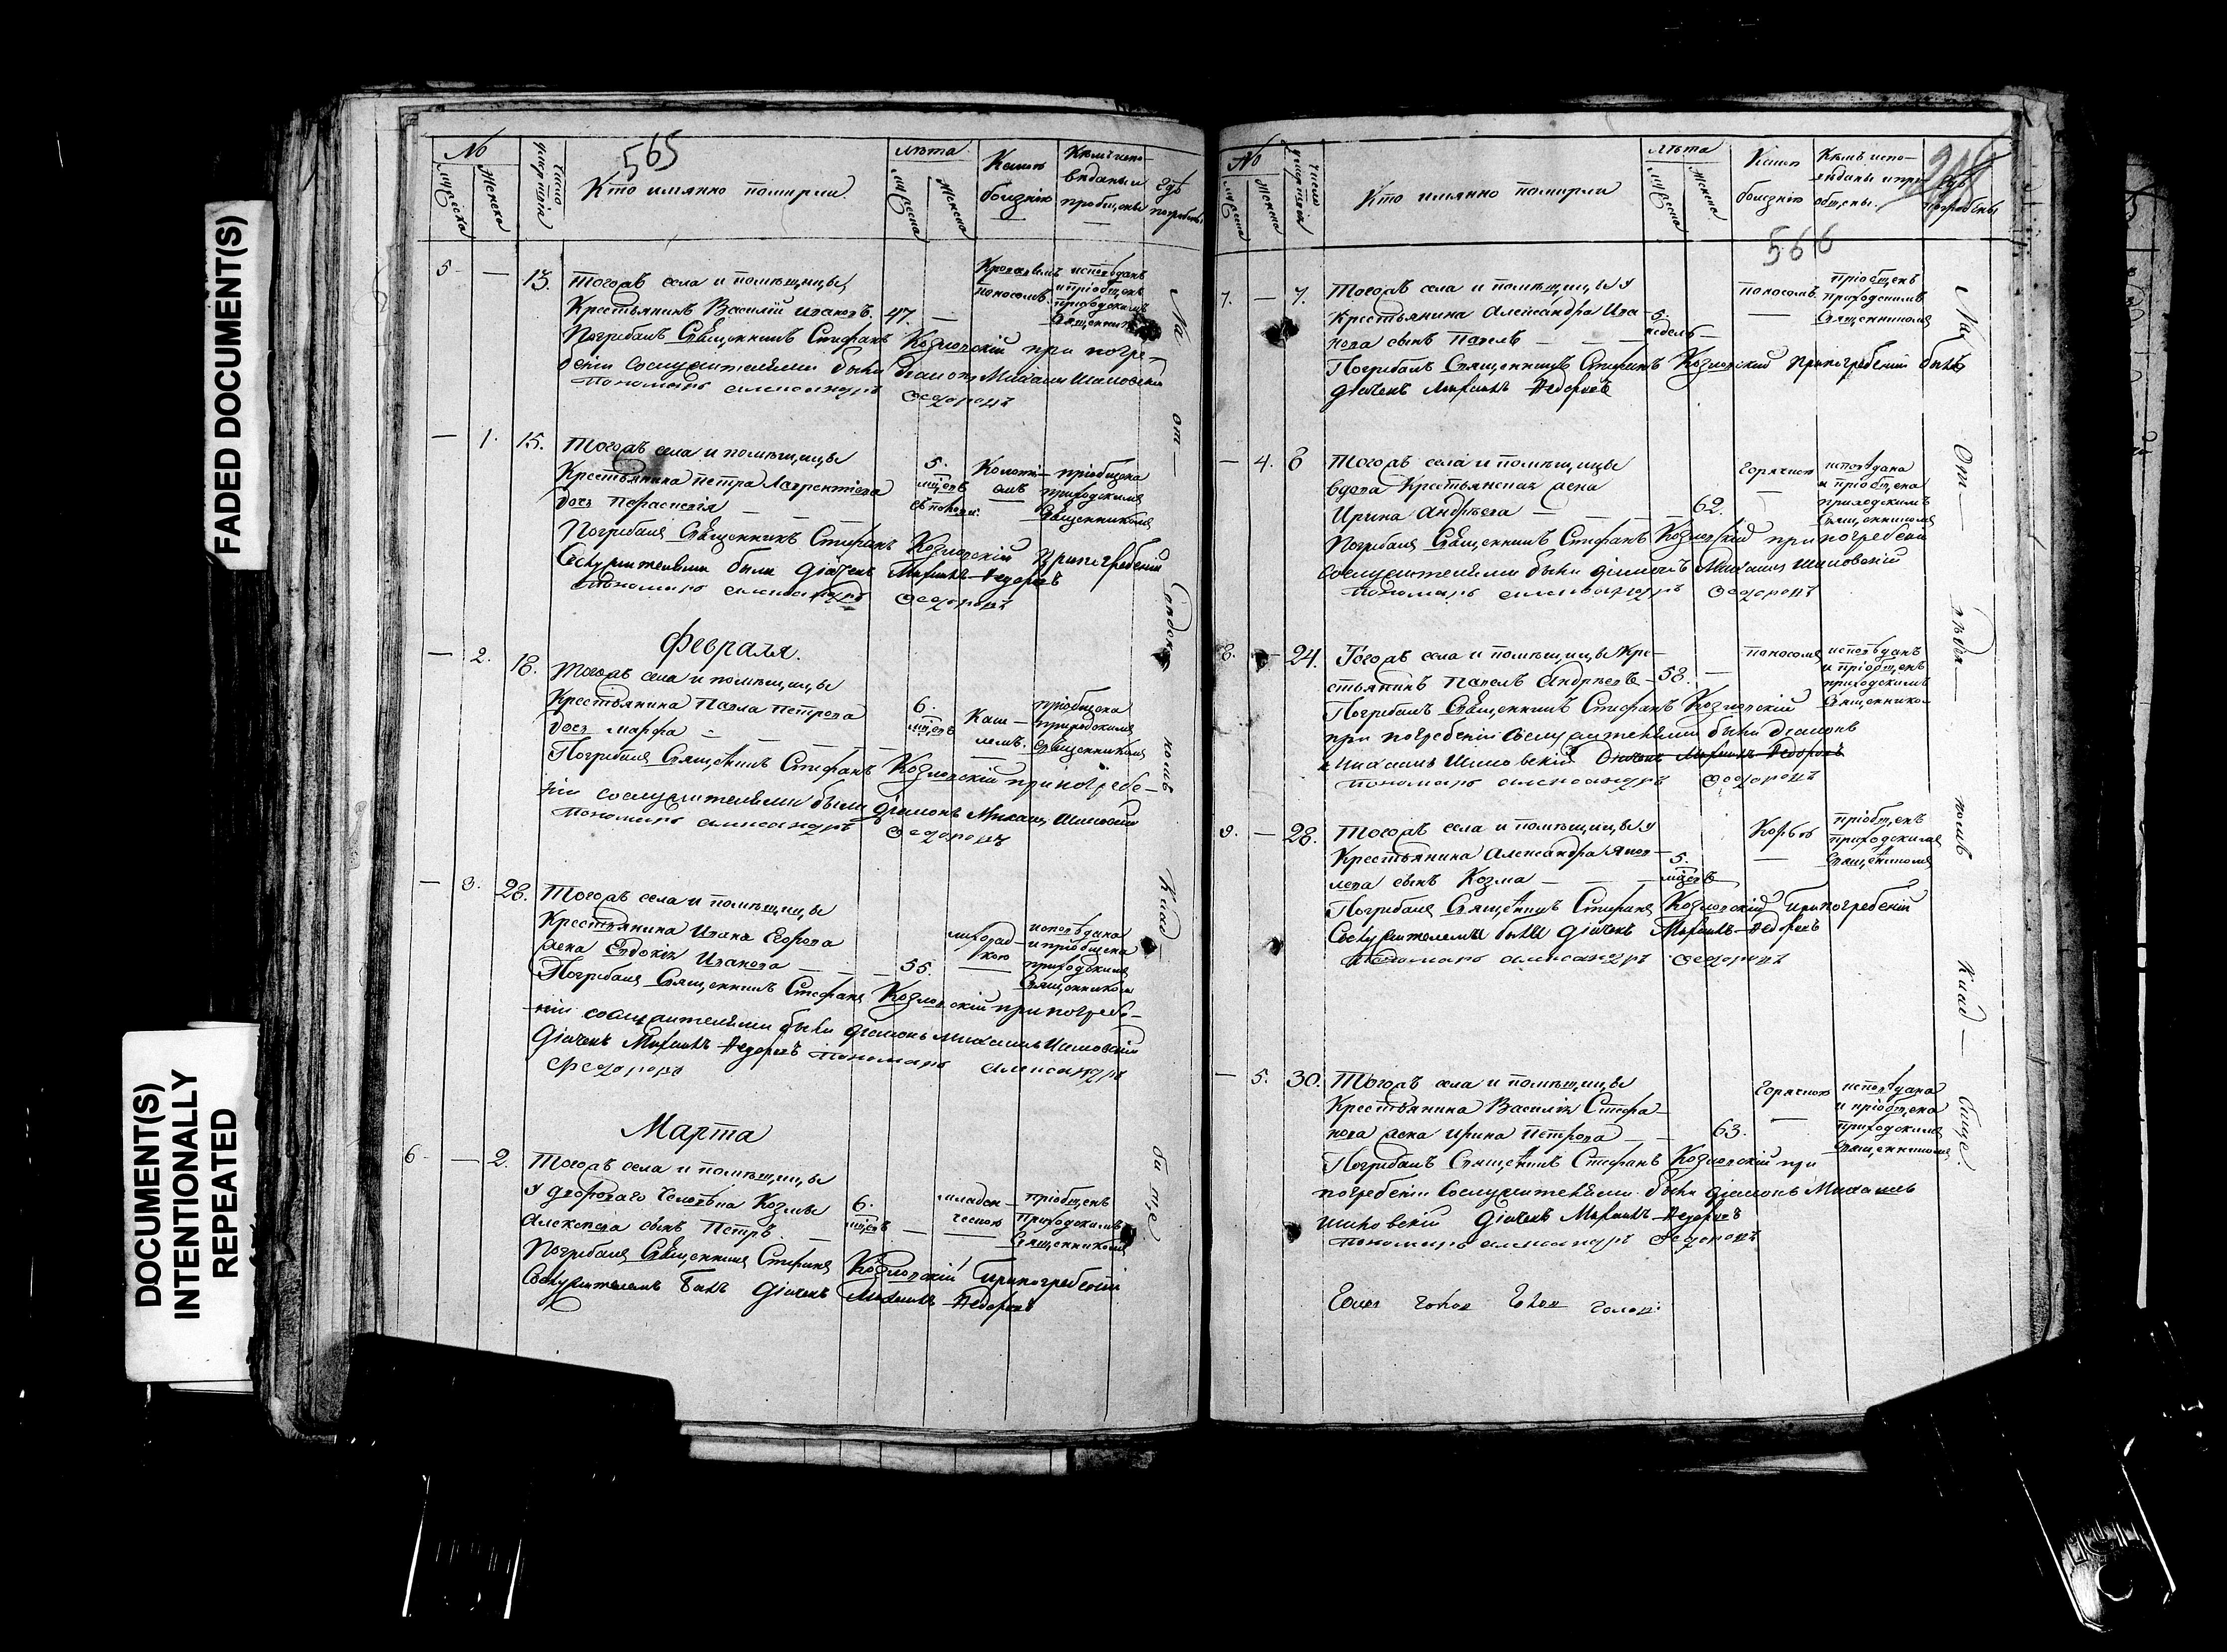 FADED DOCUMENT(S)
DOCUMENT(S)
INTENTIONALLY
REPEATED
565
№
мужеска
женска
Число
умертвія
Кто имянно померли.
лѣта
мужеска
женска
Какою
болѣзнію
Кѣмъ испо-
вѣданы и
пріобщены
гдѣ
погребены
5 — 13.
Тогожъ села и помѣщицы
Крестьянинъ Василій Ивановъ. 47. —
Кровавымъ
поносомъ.
исповѣданъ
и пріобщенъ
приходскимъ
Священникомъ
Погребалъ Священникъ Стефанъ Козловскій при погре-
беніи сослужителями были діаконъ Михаилъ Шиловскій
пономарь Александръ Ѳедоровъ
— 1. 15.
Тогожъ села и помѣщицы
Крестьянина Петра Лаврентіева
дочь Параскевія — — —
5.
мѣсяцъ
съ полов:
пріобщена
приходскимъ
Священникомъ
Погребалъ Священникъ Стефанъ Козловскій при погребеніи
Сослужителями были дьячекъ Михаилъ Федоровъ
пономарь Александръ Ѳедоровъ
Февраля.
— 2. 18.
Тогожъ села и помѣщицы
Крестьянина Павла Петрова
дочь Марфа — — — —
6.
мѣсяцъ
Каш-
лемъ.
пріобщена
приходскимъ
Священникомъ
Погребалъ Священникъ Стефанъ Козловскій при погребе-
ніи сослужителями были діаконъ Михаилъ Шиловскій
пономарь Александръ Ѳедоровъ
— 3. 28.
Тогожъ села и помѣщицы
Крестьянина Ивана Егорова
жена Евдокія Иванова — — — 55.
лихорад-
кою
исповѣдана
и пріобщена
приходскимъ
Священникомъ
Погребалъ Священникъ Стефанъ Козловскій при погребе-
ніи сослужителями были діаконъ Михаилъ Шиловскій
дьячекъ Михаилъ Федоровъ пономарь Александръ
Ѳедоровъ
Марта
6 — 2.
Тогожъ села и помѣщицы
у двороваго человѣка Козмы
Алексѣева сынъ Петръ. —
6.
мѣсяцъ —
младен-
ческою
пріобщенъ
Приходскимъ
Священникомъ
Погребалъ Священникъ Стефанъ Козловскій при погребеніи
Сослужителемъ былъ дьячекъ Михаилъ Федоровъ
На от— кладб ище
№
мужеска
женска
Число
умертвія
Кто имянно померли
лѣта
мужеска
женска
Какою
болѣзнію
Кѣмъ испо-
вѣданы и прі-
общены.
гдѣ
погребены
566
7. — 7.
Тогожъ села и помѣщицы у
крестьянина Александра Ива-
нова сынъ Павелъ — — —
5.
недель —
поносомъ
пріобщенъ
приходскимъ
Священникомъ
Погребалъ Священникъ Стефанъ Козловскій при погребеніи былъ
дьячекъ Михаилъ Федоровъ
— 4. 8
Тогожъ села и помѣщицы
вдова Крестьянская жена
Ирина Андрѣева — — — 62.
горячкою
исповѣдана
и пріобщена
приходскимъ
Священникомъ
Погребалъ Священникъ Стефанъ Козловскій при погребеніи
сослужителями были діаконъ Михаилъ Шиловскій
пономарь Александръ Ѳедоровъ
8. — 24.
Тогожъ села и помѣщицы Кре-
стьянинъ Павелъ Андрѣевъ — 58. —
поносомъ
исповѣданъ
и пріобщенъ
приходскимъ
Священникомъ
Погребалъ Священникъ Стефанъ Козловскій
при погребеніи сослужителями были діаконъ
Михаилъ Шиловскій дьячекъ Михаилъ Федоровъ
пономарь Александръ Ѳедоровъ
9. — 28.
Тогожъ села и помѣщицы у
Крестьянина Александра Яков-
лева сынъ Козма — — —
5.
мѣсяцъ
Корью
пріобщенъ
приходскимъ
Священникомъ
Погребалъ Священникъ Стефанъ Козловскій при погребеніи
Сослужителемъ были дьячекъ Михаилъ Федоровъ
пономарь Александръ Ѳедоровъ
— 5. 30.
Тогожъ села и помѣщицы
Крестьянина Василія Стефа-
нова жена Ирина Петрова — — 63.
горячкою
исповѣдана
и пріобщена
приходскимъ
Священникомъ
Погребалъ Священникъ Стефанъ Козловскій при
погребеніи Сослужителями были діаконъ Михаилъ
Шиловскій дьячекъ Михаилъ Федоровъ
пономарь Александръ Ѳедоровъ
На От—